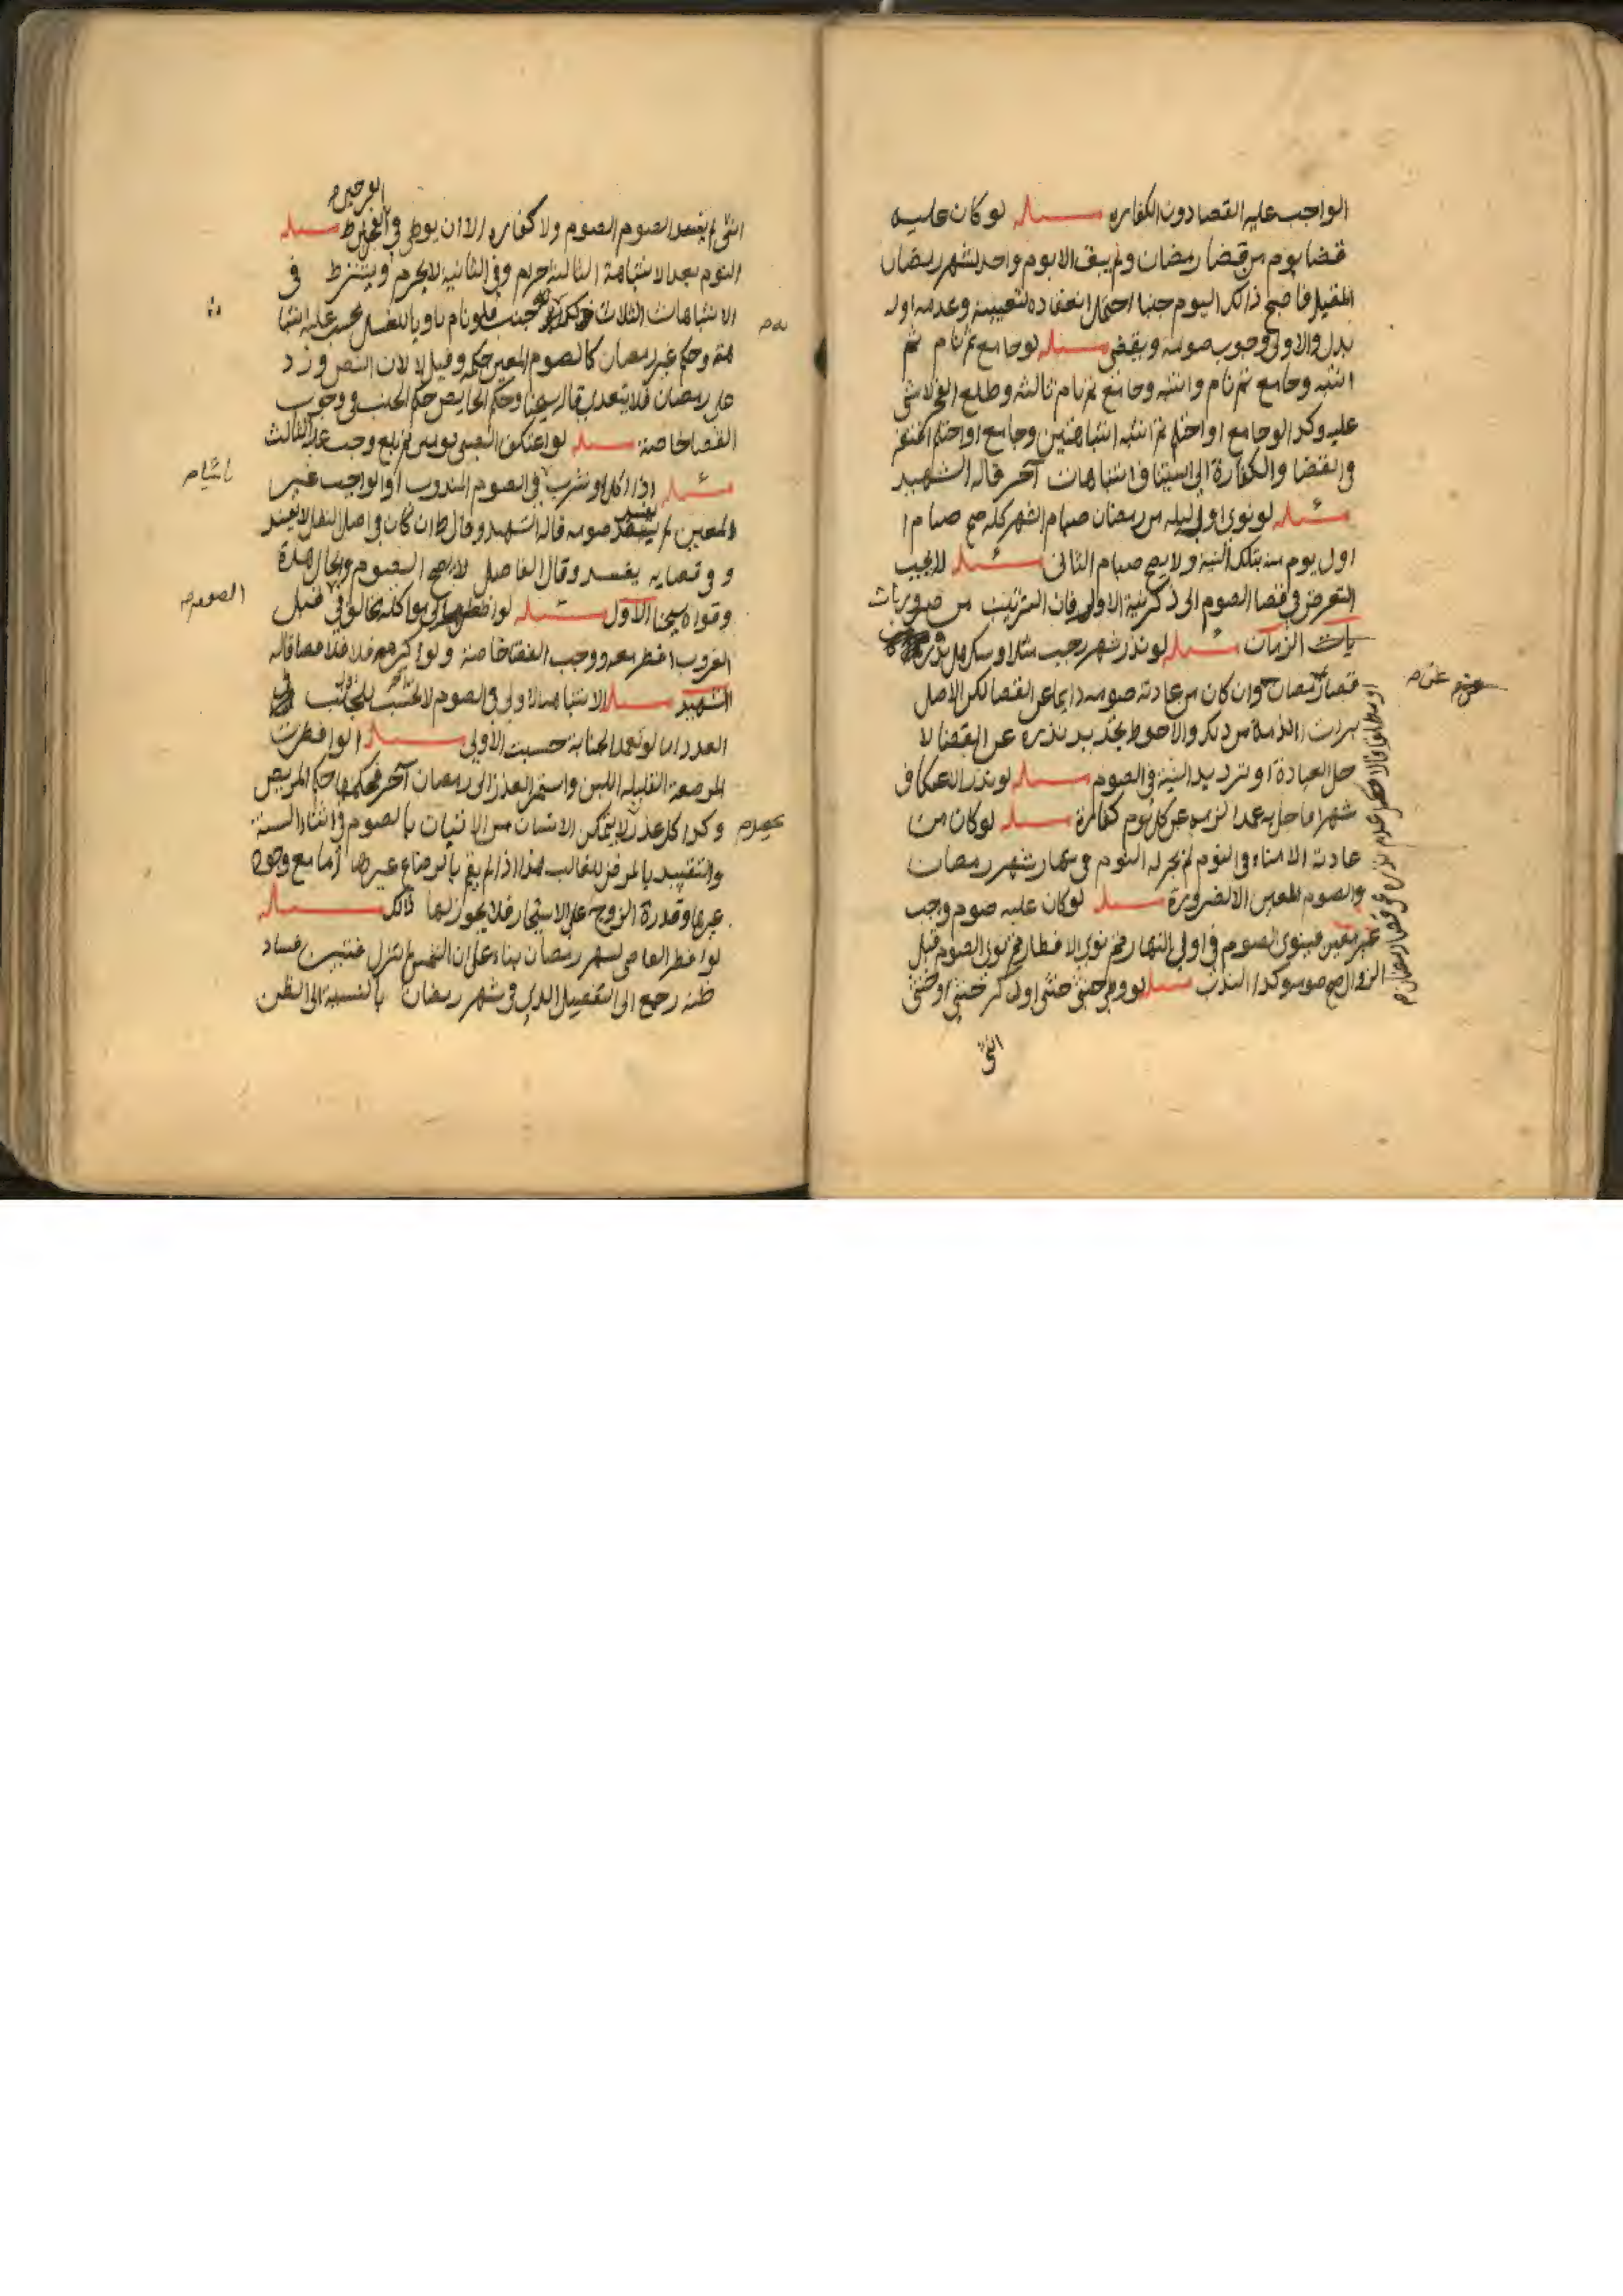 الواجب عليه القضا دون الكفاره مسئله لو كان عليه
قضا يوم من قضا رمضان ولم يبق الا يوم واحد لشهر رمضان
المقبل فاصبح ذالك اليوم جنبا احتمل انعقاده لتعيينه وعدمه اوله
بدل والاولى وجوب صومه ويقضى مسئله لو جامع ثم نام ثم
انتبه وجامع ثم نام وانتبه وجامع ثم نام ثالثه وطلع الفجر لا شى
عليه وكذا لو جامع او احتلم ثم انتبه انتباهتين وجامع او احتلم
والقضا والكفارة الى استيناف انتباهات آخر قاله الشهيد
مسئله لو نوى اول ليله من رمضان صيام الشهر كله صح صيام
اول يوم منه بتلك النية ولا يصح صيام الثانى مسئله لا يجب
التعرض فى قضا الصوم الى ذكر نية الاولى فان الترتيب من ضروريات
يات الزمان مسئله لو نذر شهر رجب مثلا او سكر هل
قضا رمضان وان كان من عادته صومه دايما عن القضا لكن الاصل
برات الذمة من ذلك والاحوط تجديد نذره عن القضا لا
حل العبادة او ترديد النية فى الصوم مسئله لو نذر اعتكاف
شهرا فاخل به عمدا لزمه عن كل يوم كفارة مسئله لو كان من
عادته الامناء فى النوم لم يجز له النوم فى نهار شهر رمضان
والصوم المعين الا لضرورة مسئله لو كان عليه صوم واجب
غير معين فينوى الصوم فى اول النهار ثم نوى الافطار ثم نوى الصوم قبل
الزوال صح صومه وكذا الندب مسئله لو وطى خنثى خنثى او ذكر خنثى او خنثى
انثى
انثى لم يفسد الصوم ولا كفاره الا ان يوطى فى مسئله
النوم بعد الانتباهة الثالثة حرام وفى الثانية لا يحرم ويشترط فى
الانتباهات الثلاث جنب فلو نام ناويا للغسل يحسب عليه انتبا
هته وحكم غير رمضان كالصوم المعين حكمه وقيل لا لان النص ورد
على رمضان فلا يتعدى قاله شيخنا وحكم الحايض حكم الجنب فى وجوب
القضا خاصة مسئله لو اعتكف الصبى يومين ثم بلغ وجب عليه الثالث
مسئله اذا اكل او شرب فى الصوم المندوب او الواجب غير
المعين لم يفسد صومه قاله الشهيد وقال ط ان كان فى اصل النفل لا يفسد
و وقضايه يفسد وقال الفاضل لا يصح الصوم والحال هذه
وقواه شيخنا الاول مسئله
الغروب افطر معه ووجب القضا خاصة ولو اكرهه فلا قضا قاله
الشهيد مسئله الانتباهة الاولى فى الصوم لا تحتسب
العدد اما لو تعمد الجنابة حسبت الاولى مسئله لو افطرت
المرضعة القليلة اللبن واستمر العذر الى رمضان آخر فحكمها حكم المريض
وكذا كل عذر لا يتمكن الانسان من الاتيان بالصوم فى اثناء السنة
والتقييد بالمرض للغالب هذا اذا لم يقم بالرضاع غيرها اما مع وجود
غيرها وقدرة الزوج على الاستيجار فلا يجوز لها ذالك مسئله
لو افطر القاضى لشهر رمضان بناء على ان الشمس لم تنزل فتبين فساد
ظنه رجع الى التفصيل الذى فى شهر رمضان بالنسبة الى الظن